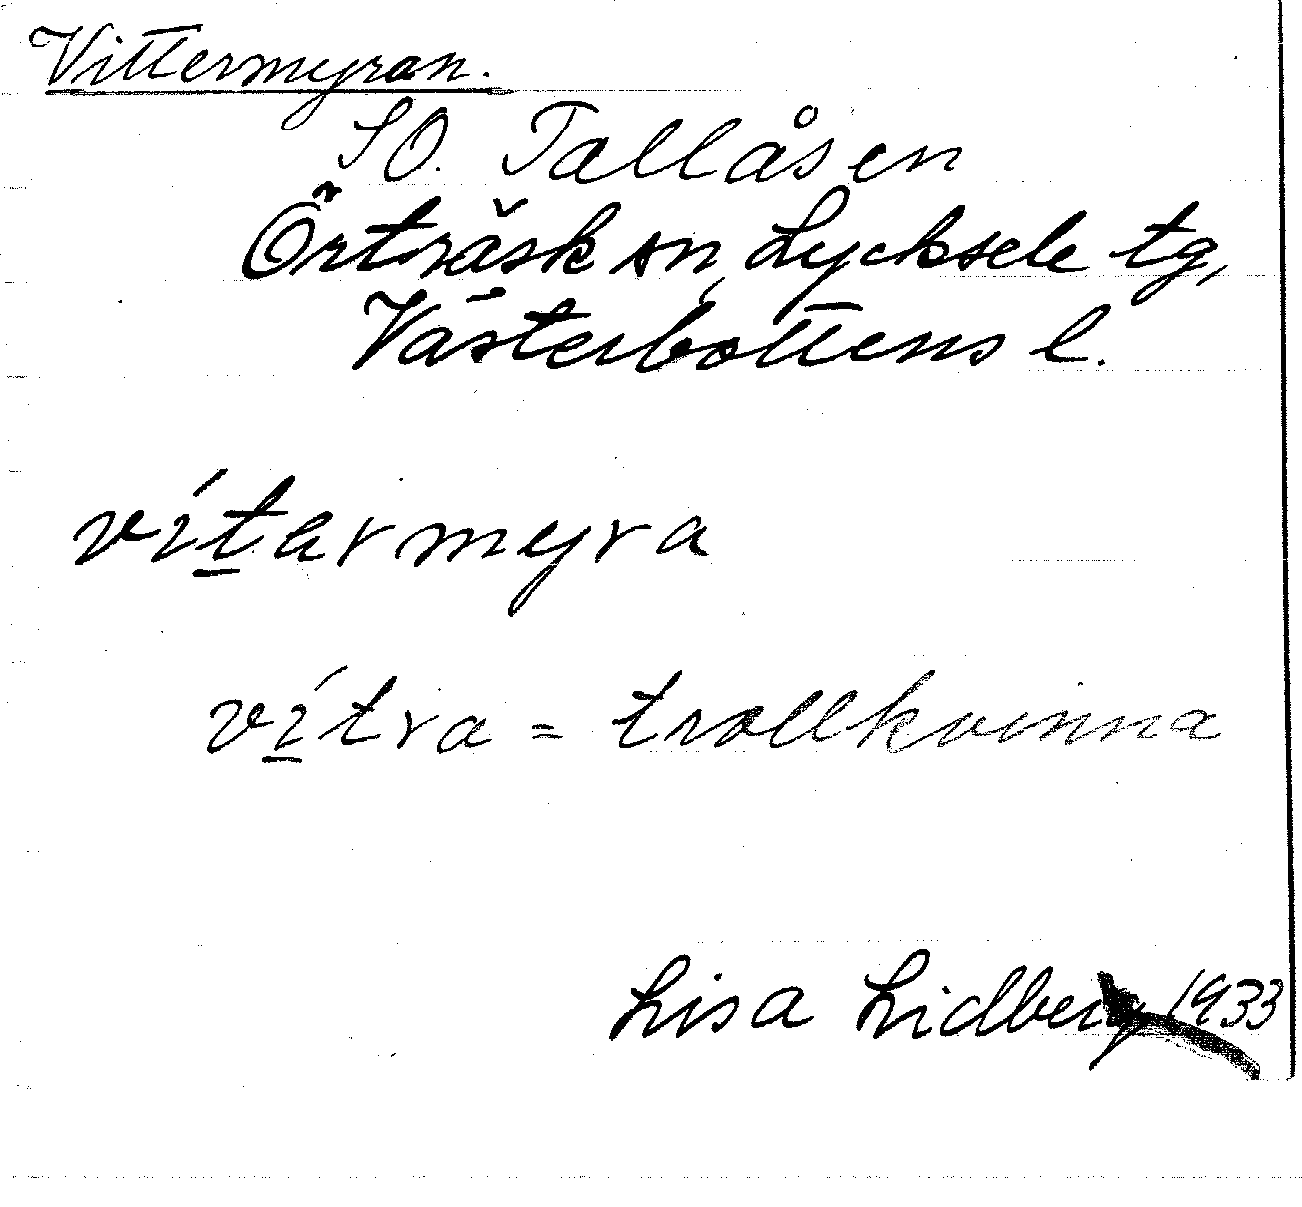 Vittermyran.
SO. Tallåsen
Örträsk sn, Lycksele tg,
Västerbottens l.
vítarmyra
vítra = trollkvinna
Lisa Lidberg 1933